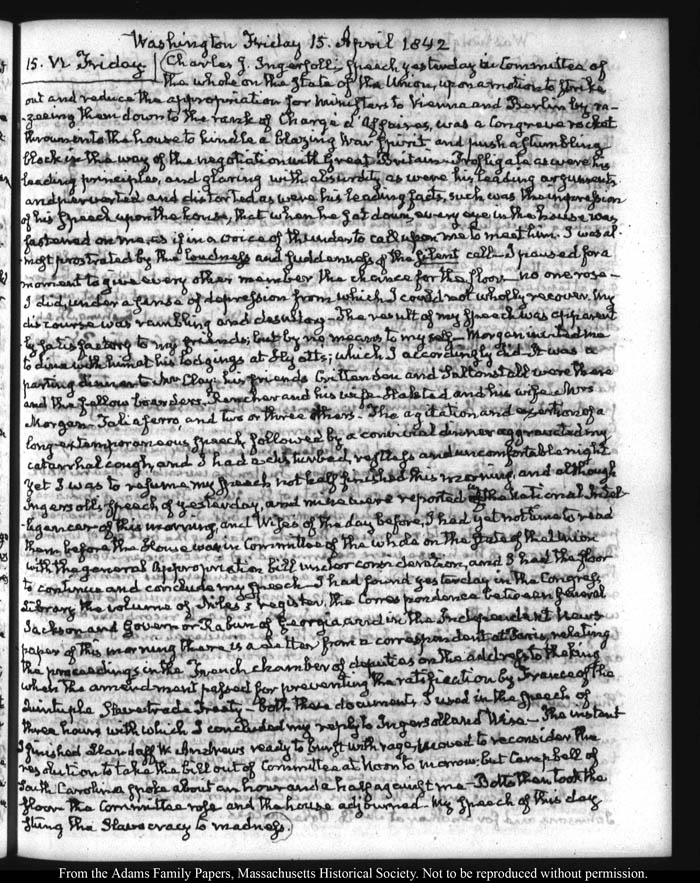 Washington Friday 15. April 1842
15. VI. Friday. Charles J. Ingersoll's speech, yesterday in Committee of
the whole on the State of the Union, upon a motion to strike
out and reduce the appropriation for Ministers to Vienna and Berlin by ra-
-zeeing them down to the rank of Chargé d'Affaires, was a Congreve rocket
thrown into the house to kindle a blazing War spirit, and push a stumbling
block in the way of the negotiation with Great Britain. Profligate as were his
leading principles, and glaring with absurdity as were his leading arguments
and perverted and distorted as were his leading facts, such was the impression
of his speech upon the house, that when he sat down, every eye in the house was
fastened on me, as if in a voice of thunder to call upon me to meet him. I was al-
-most prostrated by the loudness and suddenness of the silent call. I paused for a
moment to give every other member the chance for the floor — no one rose —
I did, under a sense of depression from which I could not wholly recover. My
discourse was rambling and desultory — The result of my speech was apparent
ly satisfactory to my friends; but by no means to myself — Morgan invited me
to dine with him at his lodgings at Hyatts; which I accordingly did. It was a
parting dinner to Mr Clay: his friends Crittenden and Saltonstall were there
and the fellow boarders. Rencher and his wife Halsted and his wife Mrs
Morgan. Taliaferro, and two or three others. The agitation and exertion of a
long extemporaneous speech, followed by a convivial dinner aggravated my
catarrhal cough, and I had a disturbed, restless and uncomfortable night
Yet I was to resume my speech not half finished this morning, and although
Ingersoll's speech of yesterday, and mine were reported in the National Intel-
-ligencer of this morning, and Wise's of the day before, I had yet not time to read
them before the House was in Committee of the whole on the State of the Union
with the general Appropriation bill under consideration, and I had the floor
to continue and conclude my speech. I had found yesterday in the Congress
Library the volume of Niles's register, the Correspondence between General
Jackson and Governor Rabun of Georgia and in the Independent News
paper of this morning there is a letter from a correspondent at Paris, relating
the proceedings in the French chamber of deputies on the address to the King
when the amendment passed for preventing the ratification by France of the
Quintuple Slave trade Treaty — both these documents I used in the speech of
three hours with which I concluded my reply to Ingersoll and Wise — The instant
I finished Landaff W. Andrews ready to burst with rage, moved to reconsider the
resolution to take the bill out of Committee at Noon to morrow, but Campbell of
South Carolina spoke about an hour and a half against me — Botts then took the
floor the Committee rose and the house adjourned — My speech of this day
stung the Slavocracy to madness.
From the Adams Family Papers, Massachusetts Historical Society. Not to be reproduced without permission.